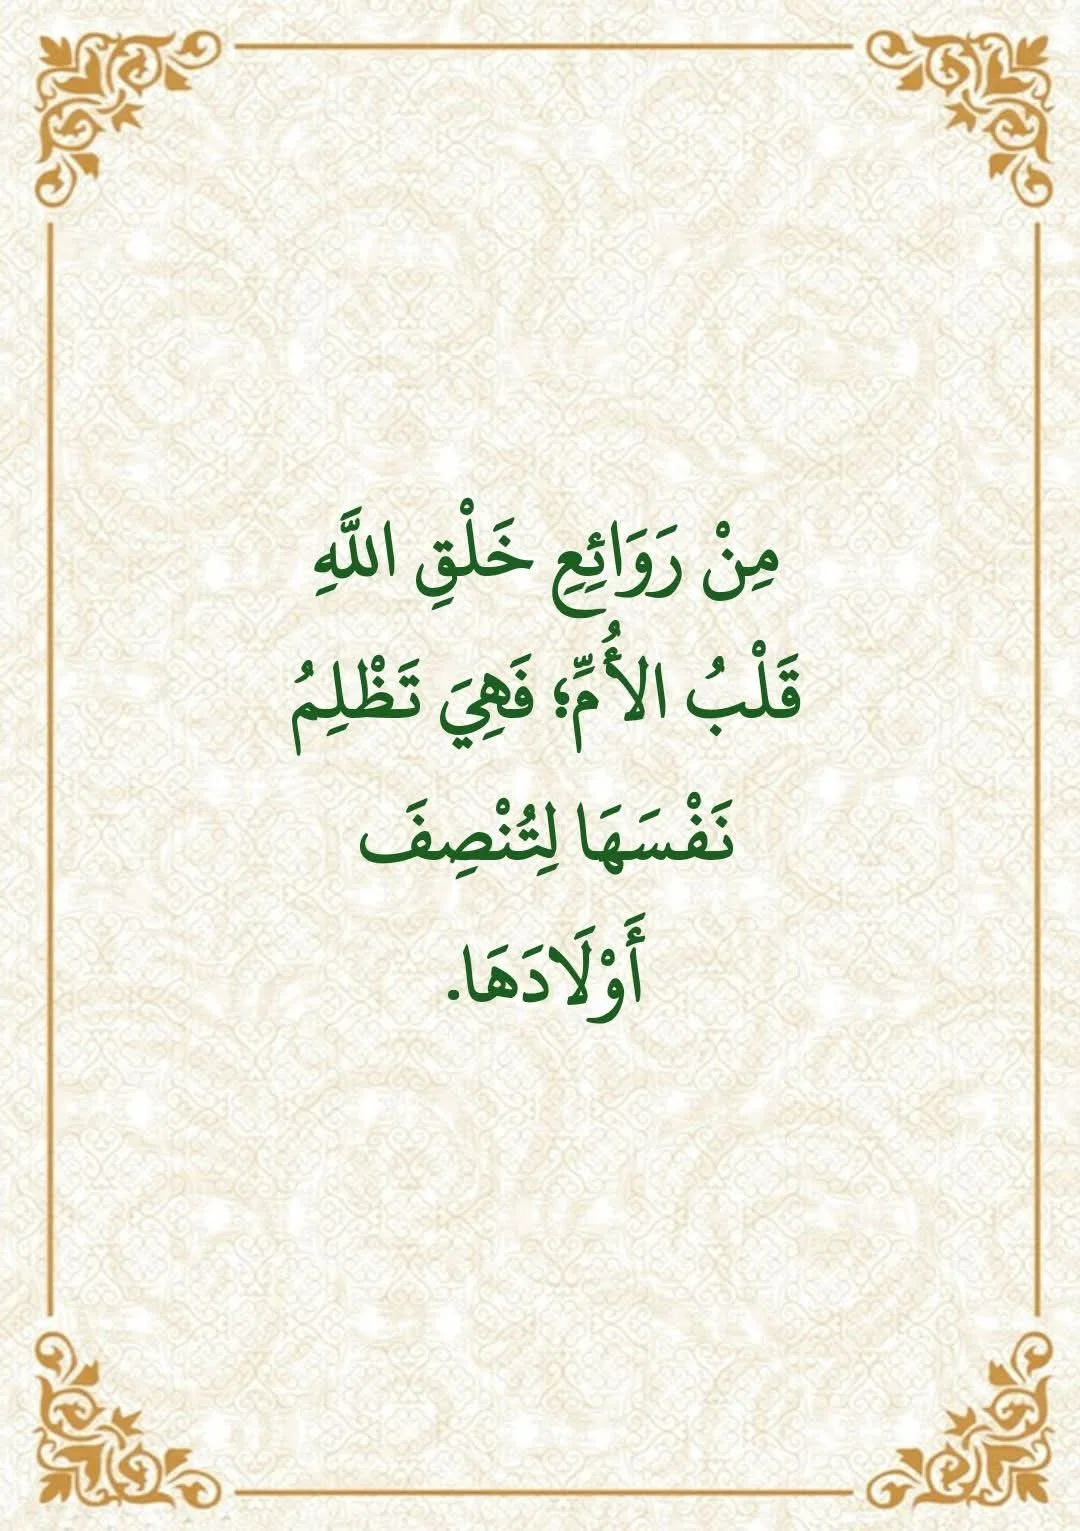 مِنْ رَوَائِعِ خَلْقِ اللَّهِ
قَلْبُ الأُمِّ؛ فَهِيَ تَظْلِمُ
نَفْسَهَا لِتُنْصِفَ
أَوْلَادَهَا.